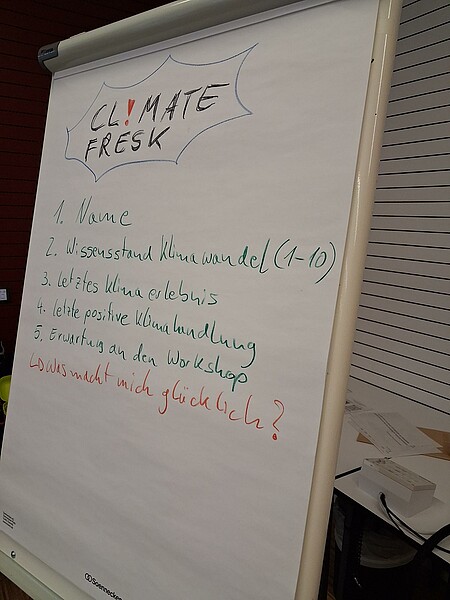 CL!MATE
FRESK
1. Name
2. Wissensstand Klimawandel (1-10)
3. Letztes Klimaerlebnis
4. Letzte positive Klimahandlung
5. Erwartung an den Workshop
↳ Was macht mich glücklich?
Soennecken